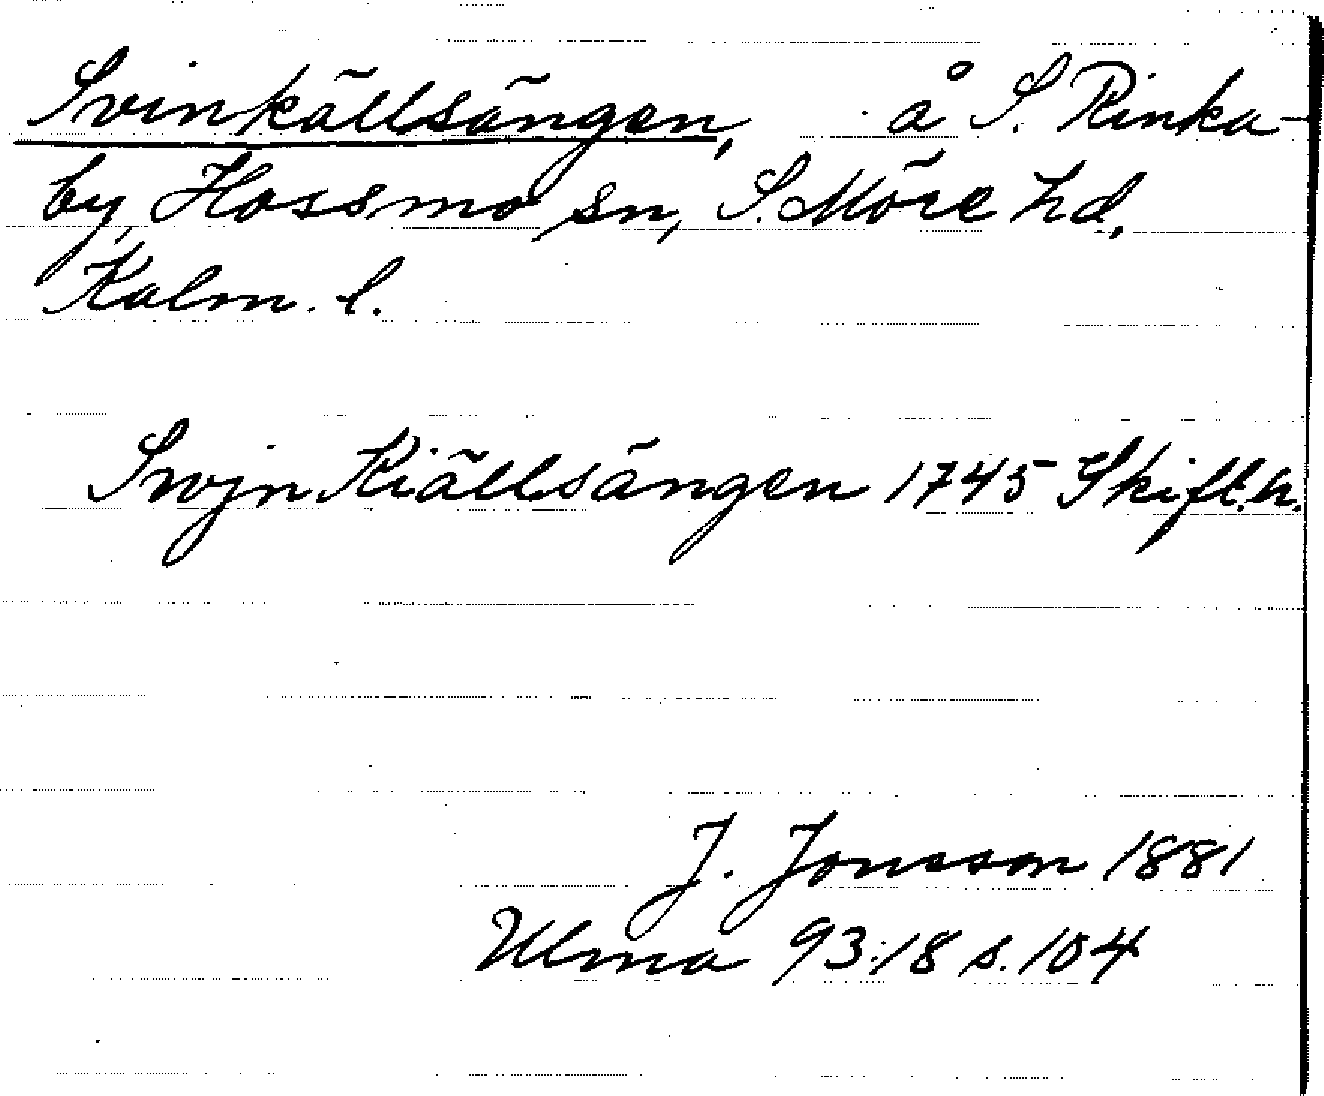 Svinkällsängen, å S. Rinka-
by, Hossmo sn, S. Möre hd,
Kalm. l.
Swjn Kiällsängen 1745 Skift.h.
J. Jonsson 1881
Ulma 93:18 s. 104